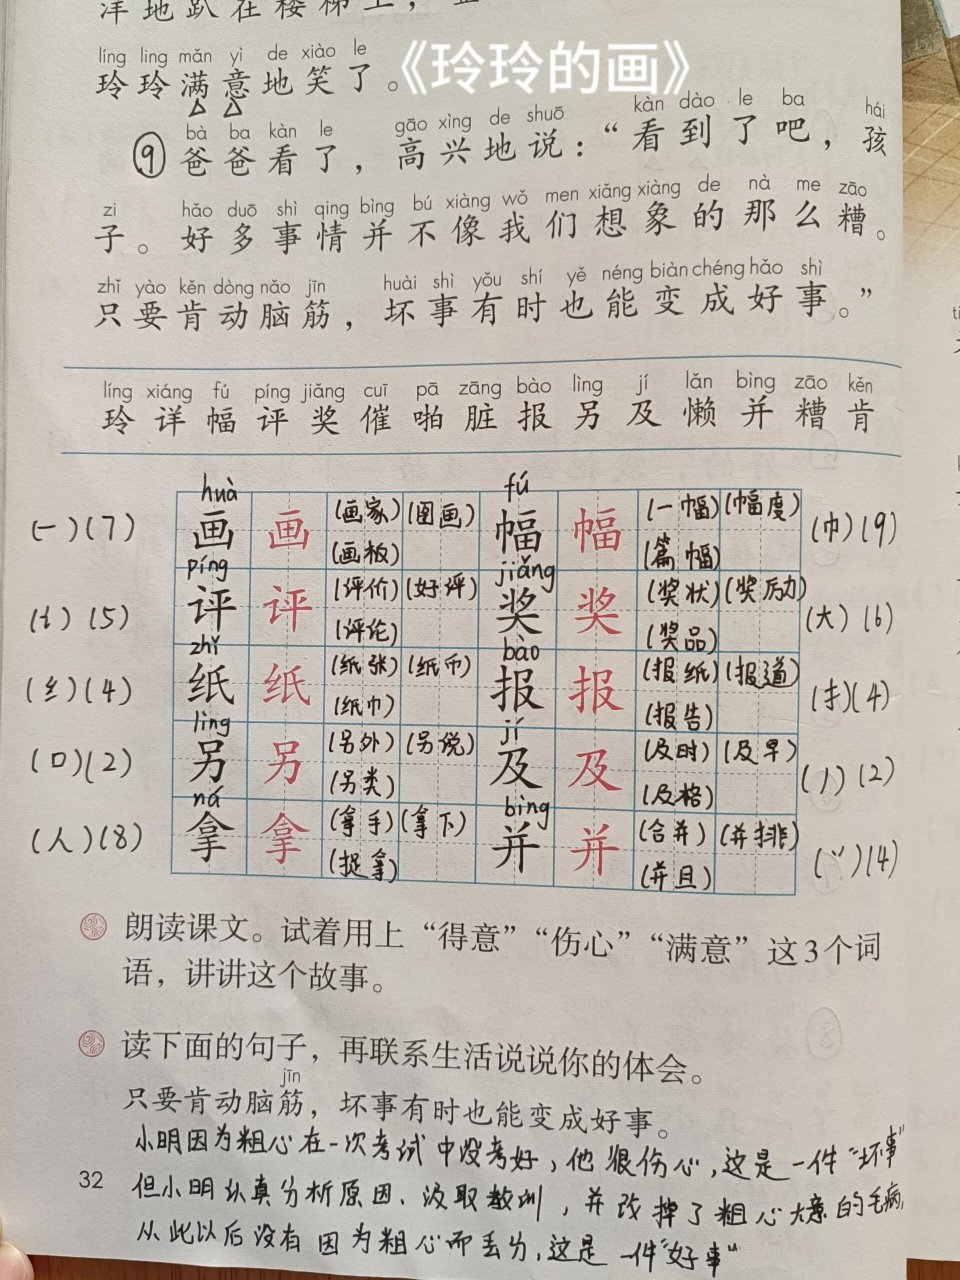 洋地趴在楼梯上，
《玲玲的画》
líng ling mǎn yì de xiào le
玲玲满意地笑了。
bà ba kàn le gāo xìng de shuō kàn dào le ba hái
⑨爸爸看了，高兴地说：“看到了吧，孩
zi hǎo duō shì qing bìng bú xiàng wǒ men xiǎng xiàng de nà me zāo
子。好多事情并不像我们想象的那么糟。
zhǐ yào kěn dòng nǎo jīn huài shì yǒu shí yě néng biàn chéng hǎo shì
只要肯动脑筋，坏事有时也能变成好事。”
líng xiáng fú píng jiǎng cuī pā zāng bào lìng jí lǎn bìng zāo kěn
玲 详 幅 评 奖 催 啪 脏 报 另 及 懒 并 糟 肯
huà fú
(一)(7) 画 画 (画家)(图画) 幅 幅 (一幅)(幅度) (巾)(9)
(画板) (篇幅)
píng jiǎng
(讠)(5) 评 评 (评价)(好评) 奖 奖 (奖状)(奖励) (大)(6)
(评论) (奖品)
zhǐ bào
(纟)(4) 纸 纸 (纸张)(纸币) 报 报 (报纸)(报道) (扌)(4)
(纸巾) (报告)
lìng jí
(口)(2) 另 另 (另外)(另说) 及 及 (及时)(及早) (丿)(2)
(另类) (及格)
ná bìng
(人)(8) 拿 拿 (拿手)(拿下) 并 并 (合并)(并排) (丷)(4)
(捉拿) (并且)
朗读课文。试着用上“得意”“伤心”“满意”这3个词
语，讲讲这个故事。
读下面的句子，再联系生活说说你的体会。
jīn
只要肯动脑筋，坏事有时也能变成好事。
小明因为粗心在一次考试中没考好，他很伤心，这是一件“坏事”
32
但小明认真分析原因、汲取教训，并改掉了粗心大意的毛病，
从此以后没有因为粗心而丢分，这是一件“好事”